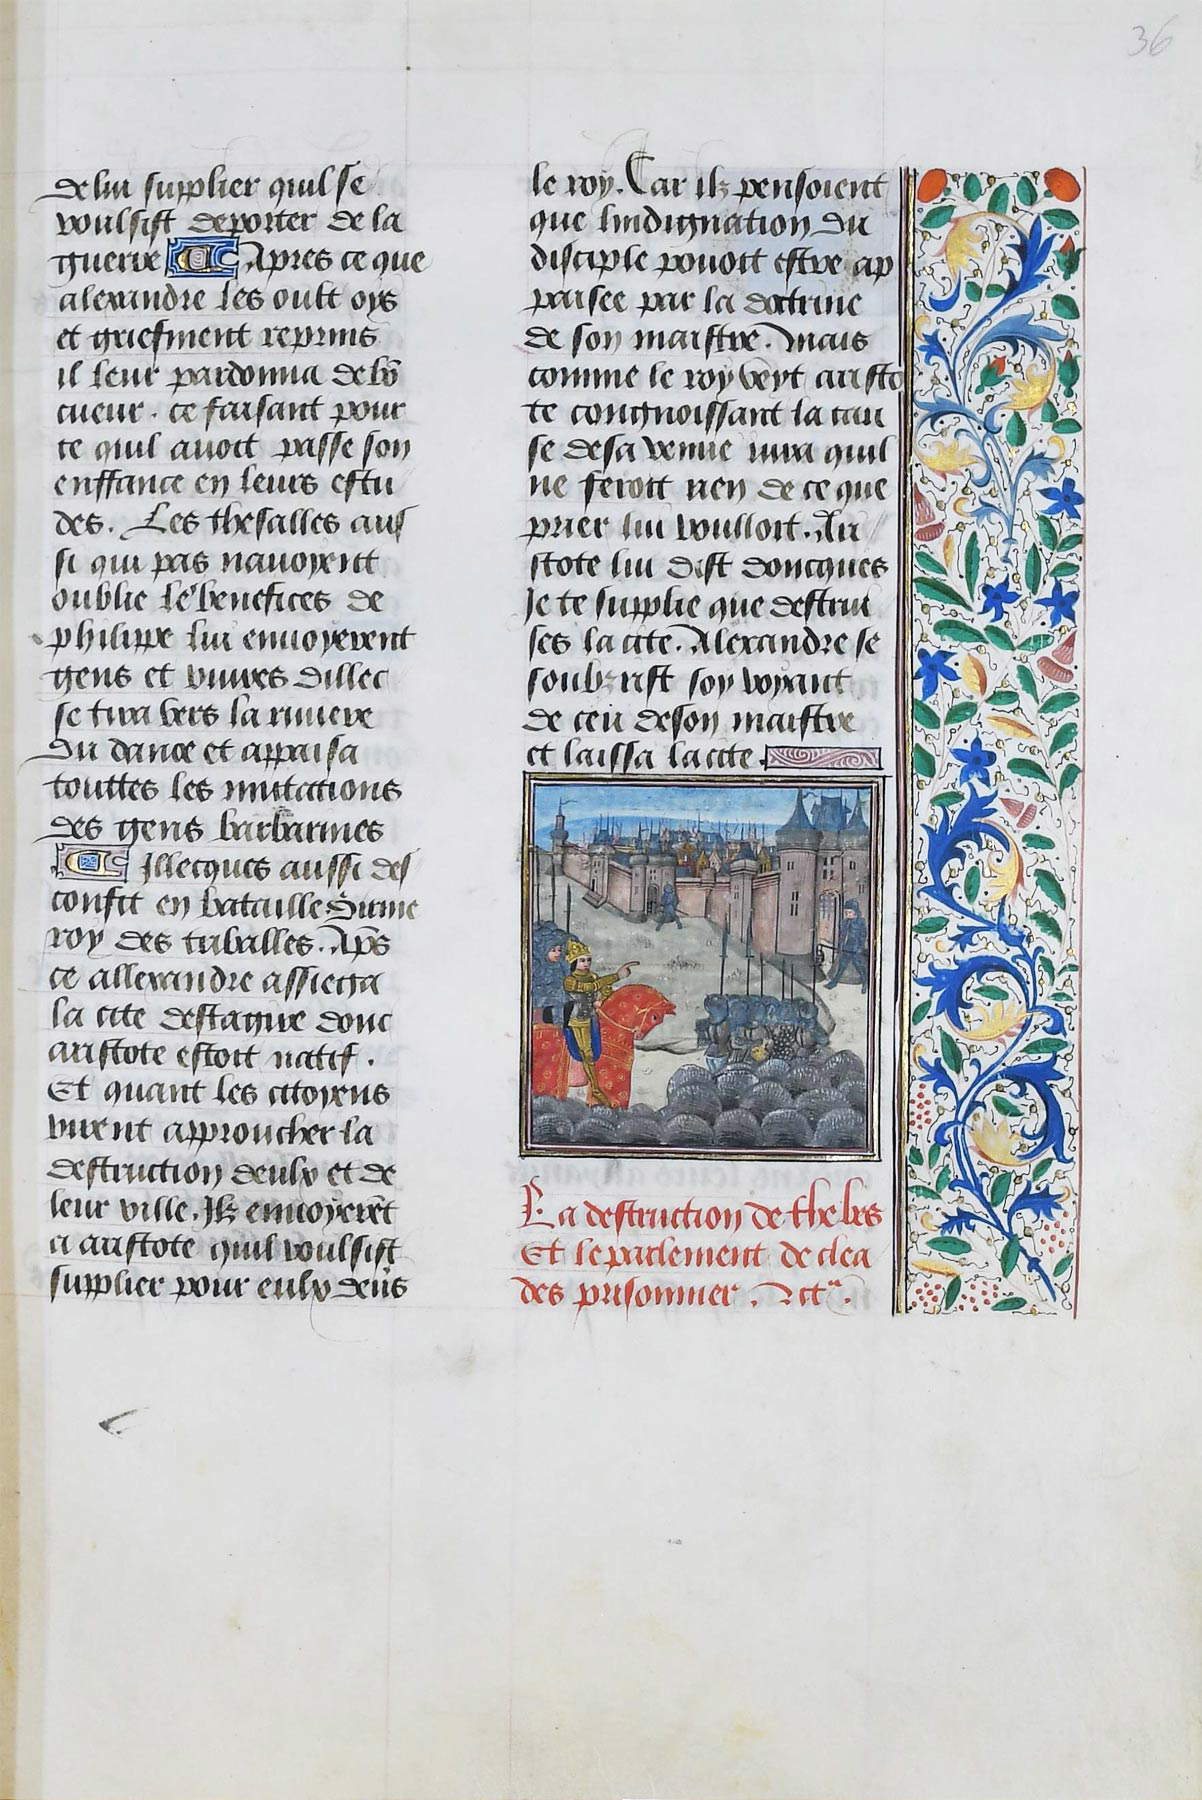 36
de lui supplier quil se
voulsist deporter de la
guerre Apres ce que
alexandre les oult oys
et griefment reprins
il leur pardonna de bõ
cueur. ce faisant pour
ce quil avoit passe son
enffance en leurs estu
des. Les thesalles aus
si qui pas navoyent
oublie les benefices de
philippe lui envoyerent
gens et vivres dillec
se tira vers la riviere
du danoe et appaisa
touttes les mutations
des gens barbarines
Illecques aussi des
confit en bataille Sirme
roy des taballes. Aps
ce allexandre assiega
la cite destagire donc
aristote estoit natif.
Et quant les citoyens
virent approucher la
destruction deulx et de
leur ville. Ilz envoyerẽt
a aristote quil voulsist
supplier pour eulx deũs
le roy. Car ilz pensoient
que lindignation du
disciple povoit estre ap
paisee par la doctrine
de son maistre. Mais
comme le roy veyt aristo
te congnoissant la cau
se desa venue iura quil
ne feroit rien de ce que
prier lui voulloit. Ari
stote lui dist doncques
Je te supplie que destrui
ses la cite. Alexandre se
soubzrist soy voyant
de ceu deson maistre
et laissa lacite.
La destruction de thebes
Et le parlement de clea
des prisonnier. Etca.